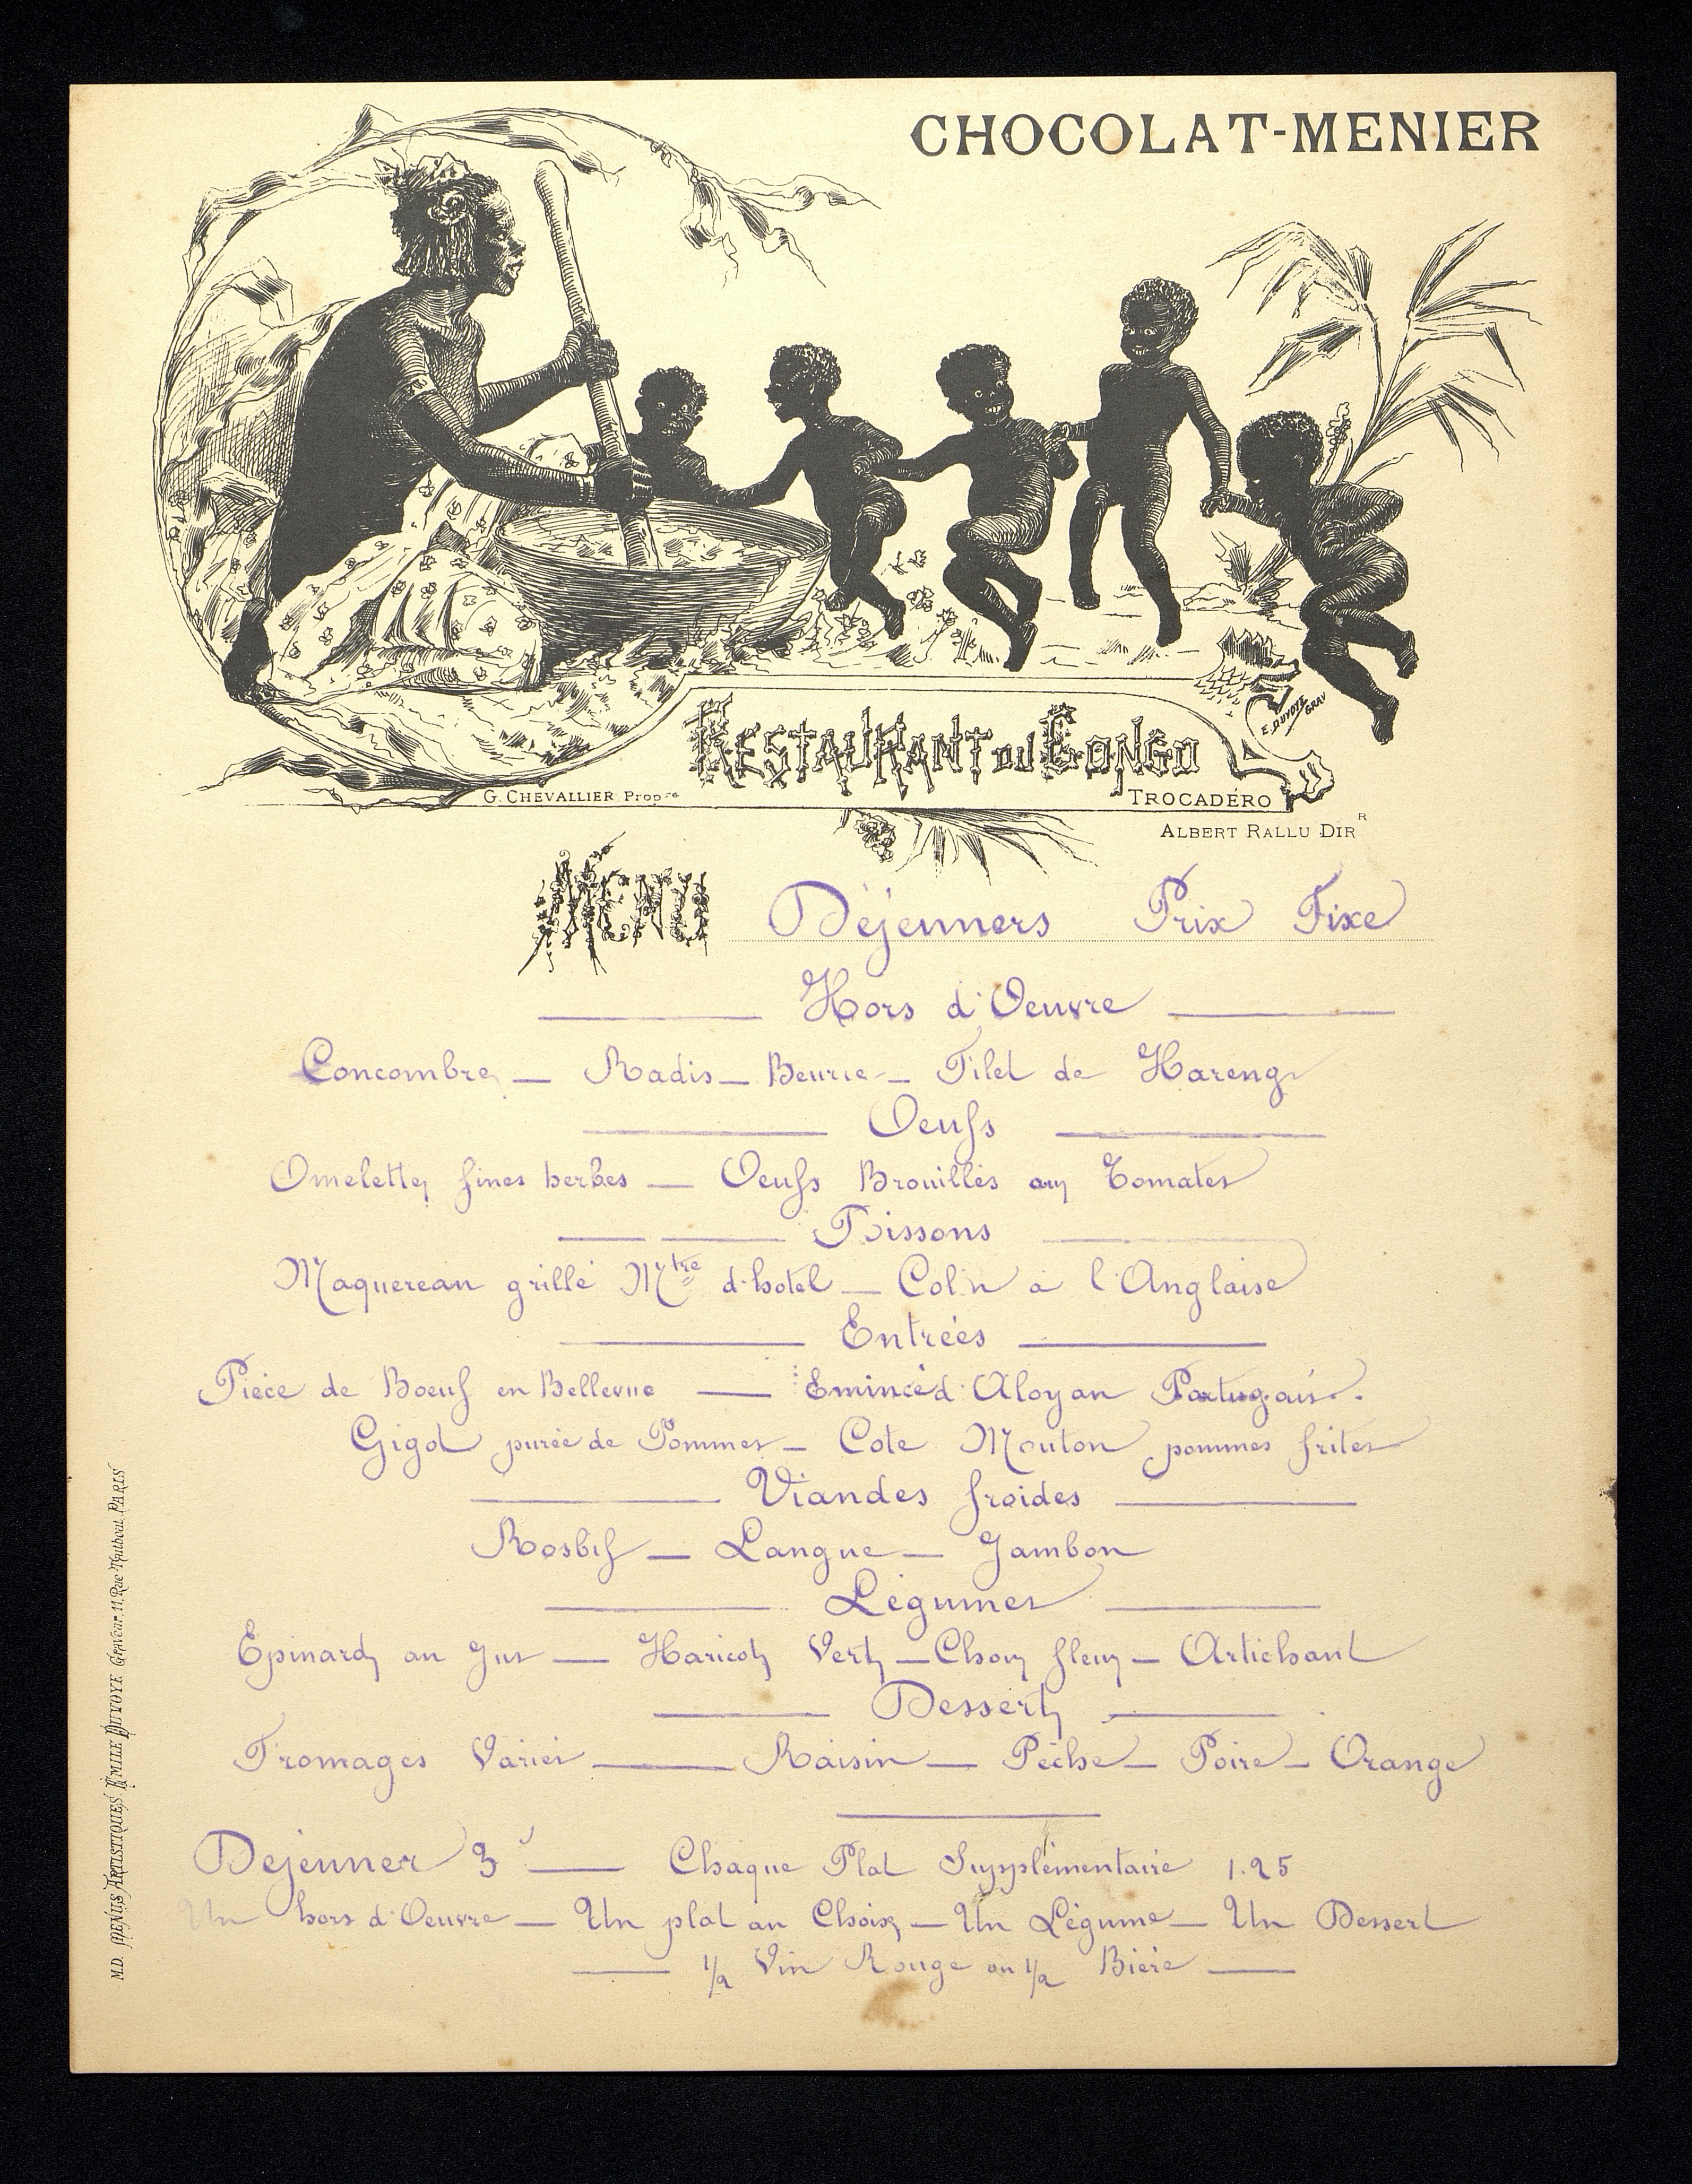 CHOCOLAT-MENIER
E. DUVOYE GRAV
RESTAURANT DU CONGO
G. CHEVALLIER Propre
TROCADÉRO
ALBERT RALLU DIR R
MENU Déjeuners Prix Fixe
Hors d'Oeuvre
Concombre — Radis — Beurre — Filet de Hareng
Oeufs
Omelettes fines herbes — Oeufs Brouillés aux Tomates
Poissons
Maquereau grillé Mtre d'hotel — Colin à l'Anglaise
Entrées
Pièce de Boeuf en Bellevue — Emincé d'Aloyau Portugais.
Gigot purée de Pommes — Cote Mouton pommes frites
Viandes froides
Rosbif — Langue — Jambon
Légumes
Epinards au Jus — Haricots Verts — Choux fleurs — Artichaut
Desserts
Fromages Variés — Raisin — Pêche — Poire — Orange
Dejeuner 3 f — Chaque Plat Supplémentaire 1.25
Un hors d'Oeuvre — Un plat au Choix — Un Légume — Un Dessert
— 1/2 Vin Rouge ou 1/2 Bière —
M.D. MENUS ARTISTIQUES EMILE DUVOYE Graveur. 11. Rue Taitbout. PARIS